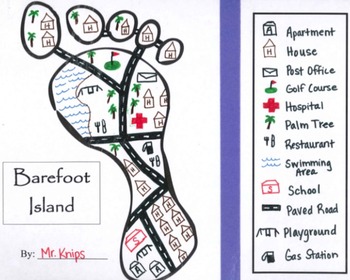 Barefoot
Island
By: Mr. Knips
Apartment
House
Post Office
Golf Course
Hospital
Palm Tree
Restaurant
Swimming
Area
School
Paved Road
Playground
Gas Station